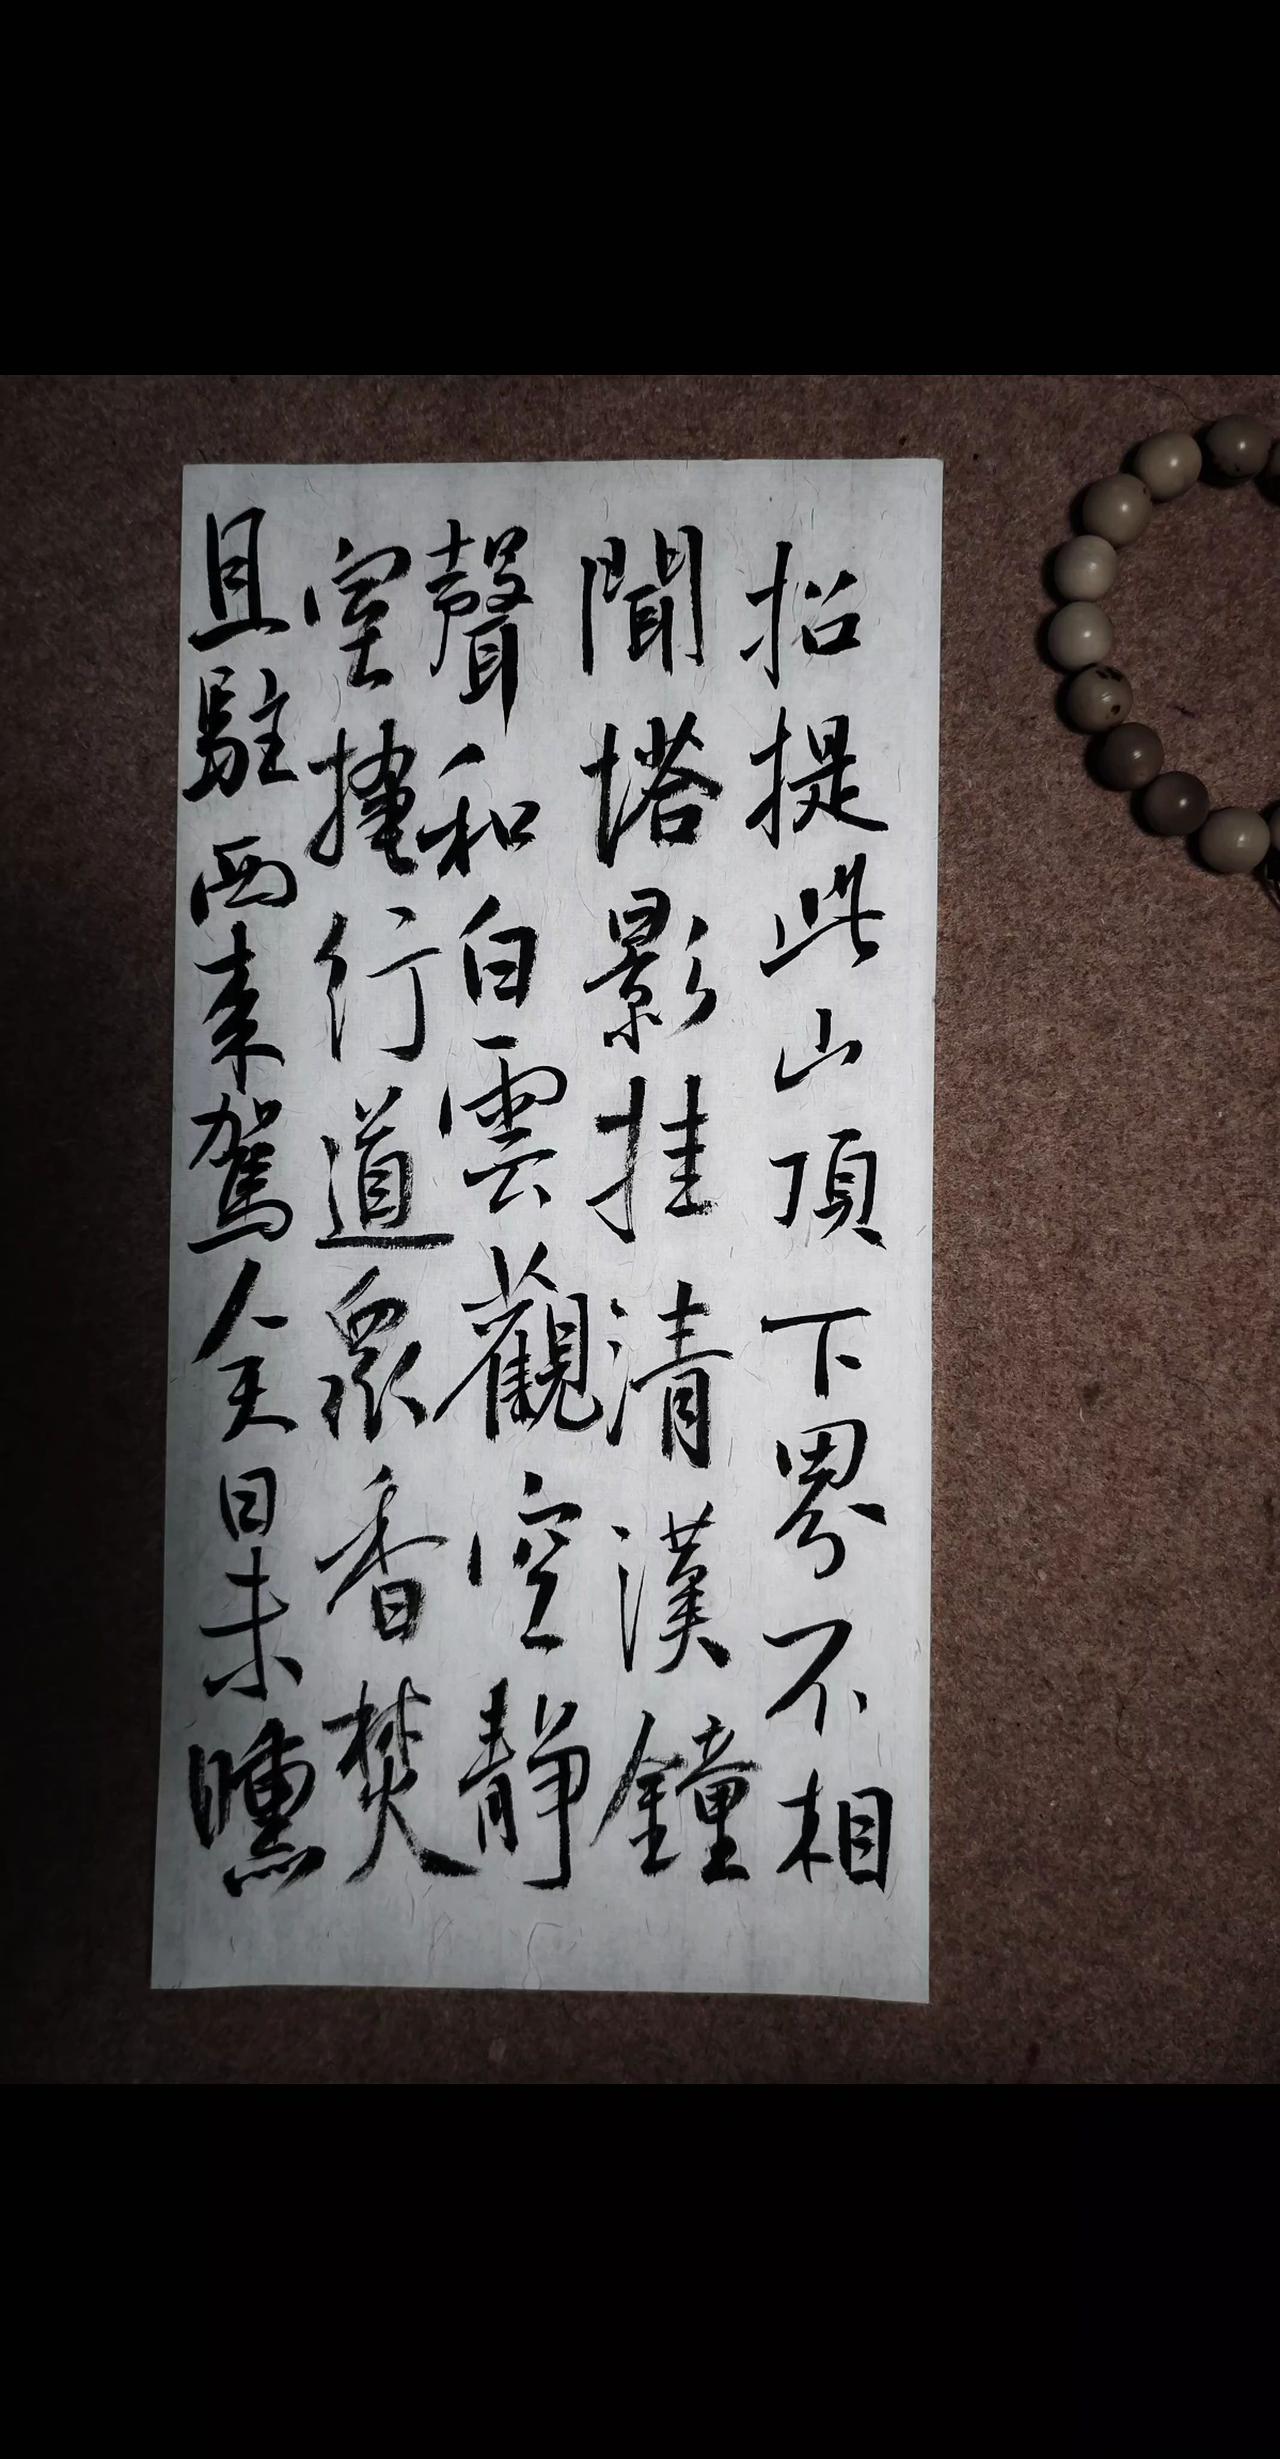 招提此山頂下界不相
聞塔影挂清漢鐘
聲和白雲觀空靜
室掩行道眾香焚
且駐西来駕人天日未曛